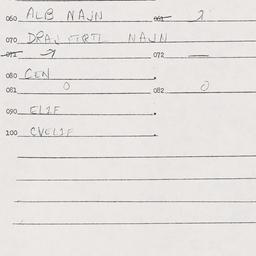 060 ALB NAJN 061
070 DRAJ NAJN
071 072 —
080 CEN
081 0 082 0
090 ELIF
100 CVELIF